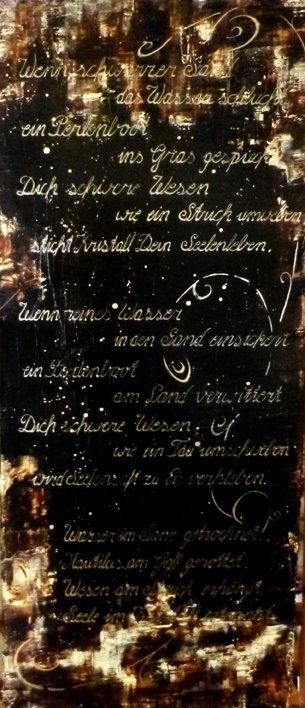 Wenn schwarzer Sand
das Wasser schluckt
ein Perlenboot
ins Gras gespuckt
Dich schwere Wesen
wie ein Strick umweben
sticht Kristall Dein Seelenleben.
Wenn reines Wasser
in den Sand einsickert
ein Perlenboot
am Land verwittert
Dich schwere Wesen
wie ein Tau umschweben
wird Seelensaft zu Eis verkleben.
Wasser im Sand getrocknet.
Nautilus am Hof gerottet.
Wesen am Strick erhängt.
Seele im